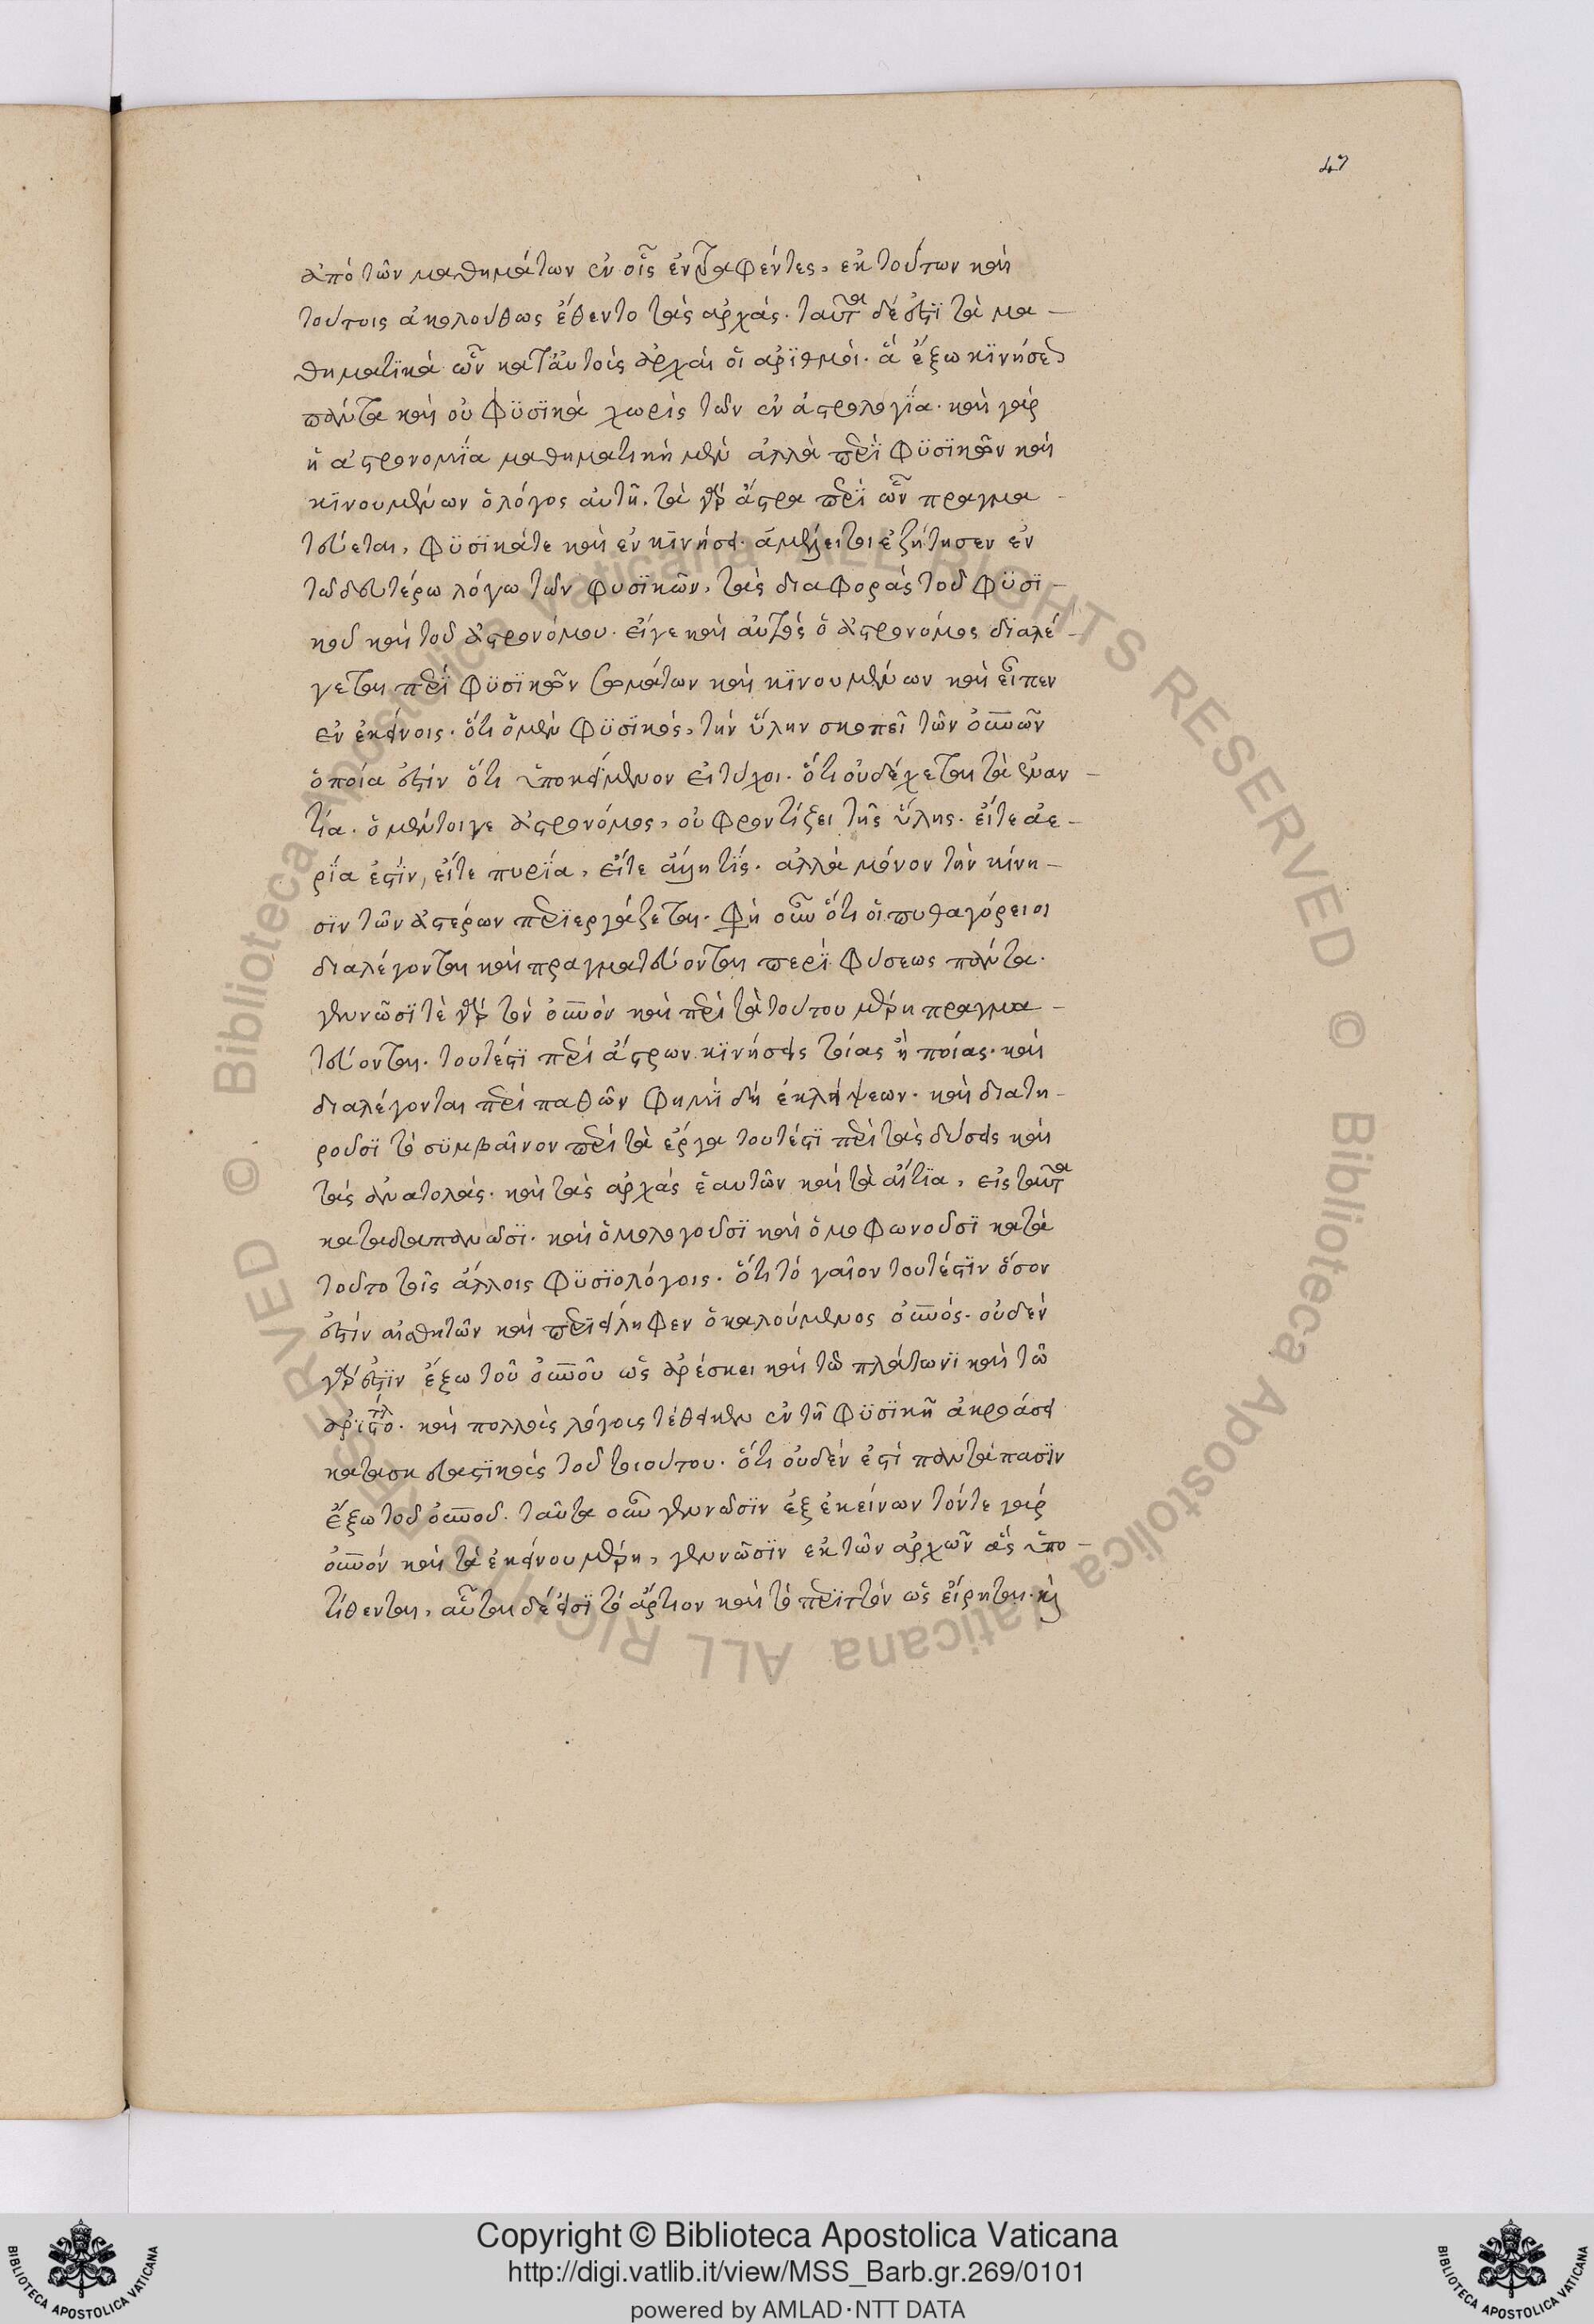 47
ἀπὸ τῶν μαθημάτων ἐν οἷς ἐντραφέντες, ἐκ τούτων καὶ
τούτοις ἀκολούθως ἔθεντο τὰς ἀρχάς. ταῦτα δέ ἐστϊ τὰ μα-
θηματϊκὰ ὧν κατ' αὐτοὺς ἀρχαὶ οἱ ἀρϊθμοί. ἃ ἔξω κϊνήσεως
πάντα καὶ οὐ φϋσϊκὰ χωρὶς τῶν ἐν ἀστρολογΐα. καὶ γὰρ
ἡ ἀστρονομΐα μαθηματικὴ μὲν ἀλλὰ περϊ φϋσϊκῶν καὶ
κϊνουμένων ὁ λόγος αὐτῆ. τὰ γὰρ ἄστρα περϊ ὧν πραγμα
τεύεται, φϋσϊκά τε καὶ ἐν κϊνήσει. ἀμέλει τοι ἐζήτησεν ἐν
τῶ δευτέρω λόγω τῶν φυσϊκῶν, τὰς διαφορὰς τοῦ φϋσϊ-
κοῦ καὶ τοῦ ἀστρονόμου. εἴγε καὶ αὐτὸς ὁ ἀστρονόμος διαλέ-
γεται περϊ φϋσϊκῶν σωμάτων καὶ κϊνουμένων καὶ εἶπεν
ἐν ἐκείνοις. ὅτι ὁ μὲν φϋσϊκός, τὴν ὕλην σκοπεῖ τῶν οὐνῶν
ὁποία ἐστίν ὅτι ὑποκείμενον εἰ τύχοι. ὅτι οὐ δέχεται τὰ ἐναν-
τία. ὁ μέντοιγε ἀστρονόμος, οὐ φροντίζει τῆς ὕλης. εἴτε ἀε-
ρΐα ἐστΐν, εἴτε πυρΐα, εἴτε ἄλλη τϊς. ἀλλὰ μόνον τὴν κίνη-
σϊν τῶν ἀστέρων περϊεργάζεται. φὴ οὖν ὅτι οἱ πυθαγόρειοι
διαλέγονται καὶ πραγματεύονται περϊ φύσεως πάντα.
γεννῶσϊ τὲ γὰρ τὸν οὐνὸν καὶ περὶ τὰ τούτου μέρη πραγμα-
τεύονται. τουτέστϊ περὶ ἄστρων κϊνήσεις τοίας ἢ ποίας. καὶ
διαλέγονται περὶ παθῶν φημὶ δὴ ἐκλείψεων. καὶ διατη-
ροῦσϊ τὸ σϋμβαῖνον περὶ τὰ ἔργα τουτέστϊ περὶ τὰς δύσεις καὶ
τὰς ἀνατολάς. καὶ τὰς ἀρχὰς ἑαυτῶν καὶ τὰ αἴτϊα, εἰς ταῦτα
καταδαπανῶσϊ. καὶ ὁμολογοῦσϊ καὶ ὁμοφωνοῦσϊ κατὰ
τοῦτο τοῖς ἄλλοις φϋσϊολόγοις. ὅτι τὸ γαῖον τουτέστϊν ὅσον
ἐστὶν αἰσθητῶν καὶ περϊείληφεν ὁ καλούμενος οὐνός. οὐδὲν
γὰρ ἐστϊν ἔξω τοῦ οὐνοῦ ὡς ἀρέσκει καὶ τῶ πλάτωνϊ καὶ τῶ
ἀρϊστοτλ. καὶ πολλοὶς λόγοις τέθεικεν ἐν τῆ φϋσϊκῆ ἀκροάσει
κατασκευαστϊκοὶς τοῦ τοιούτου. ὅτι οὐδέν ἐστί παντάπασϊν
ἔξω τοῦ οὐνοῦ. ταῦτα οὖν γεννῶσϊν ἐξ ἐκείνων τόν τε γὰρ
οὐνόν καὶ τὰ ἐκείνου μέρη, γεννῶσϊν ἐκ τῶν ἀρχῶν ἃς ὑπο-
τίθενται, αὗται δέ εἰσϊ τὸ ἄρτιον καὶ τὸ περϊττὸν ὡς εἴρηται. κὶ
Copyright © Biblioteca Apostolica Vaticana
http://digi.vatlib.it/view/MSS_Barb.gr.269/0101
powered by AMLAD·NTT DATA